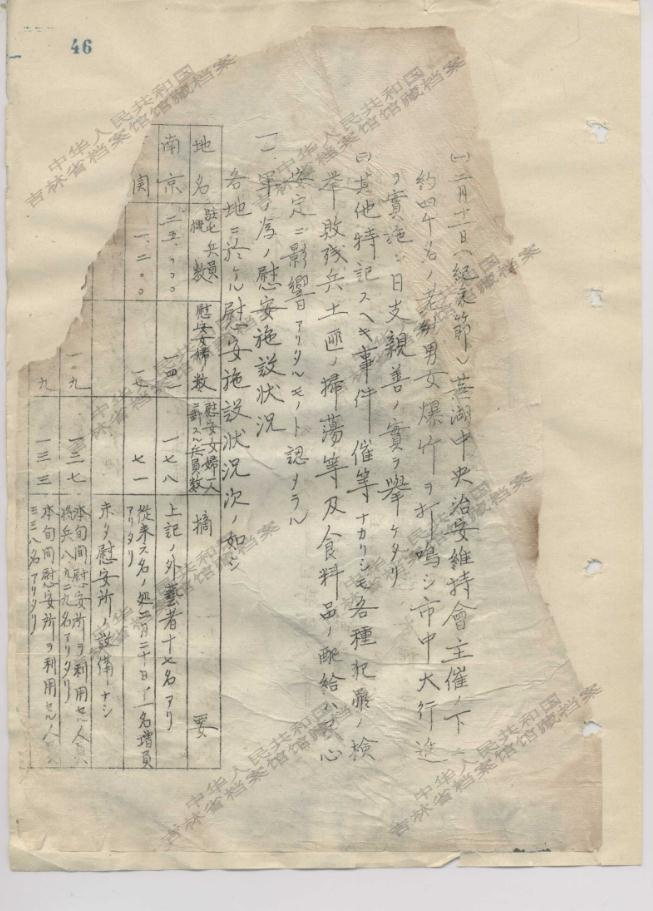 46
㈠二月十一日(紀元節)蕪湖中央治安維持會主催ノ下ニ
約四千名ノ老幼男女爆竹ヲ打鳴シ市中大行進
ヲ實施シ日支親善ノ實ヲ擧ケタリ
其他特記スヘキ事件催等ナカリシモ各種犯罪ノ檢
挙敗残兵土匪ノ掃蕩等及食料品ノ配給ハ民心
安定ニ影響アリタルモノト認メラル
一、軍ノ為ノ慰安施設状況
各地ニ於ケル慰安施設状況次ノ如シ
地名 駐屯兵員概数 慰安女婦ノ数 慰安女婦一人ニ対スル兵員数 摘要
南京 二五、〇〇〇 一四一 一七八 上記ノ外藝者十七名アリ
関 一、二〇〇 一七 七一 従来 名ノ処二月二十日一名増員アリタリ
未タ慰安所ノ設備ナシ
一〇九 一三七 本旬間慰安所ヲ利用セル人員
将兵八九二九名アリタリ
九 一三三 本旬間慰安所ヲ利用セル人
三三八名アリタリ
中华人民共和国
吉林省档案馆馆藏档案